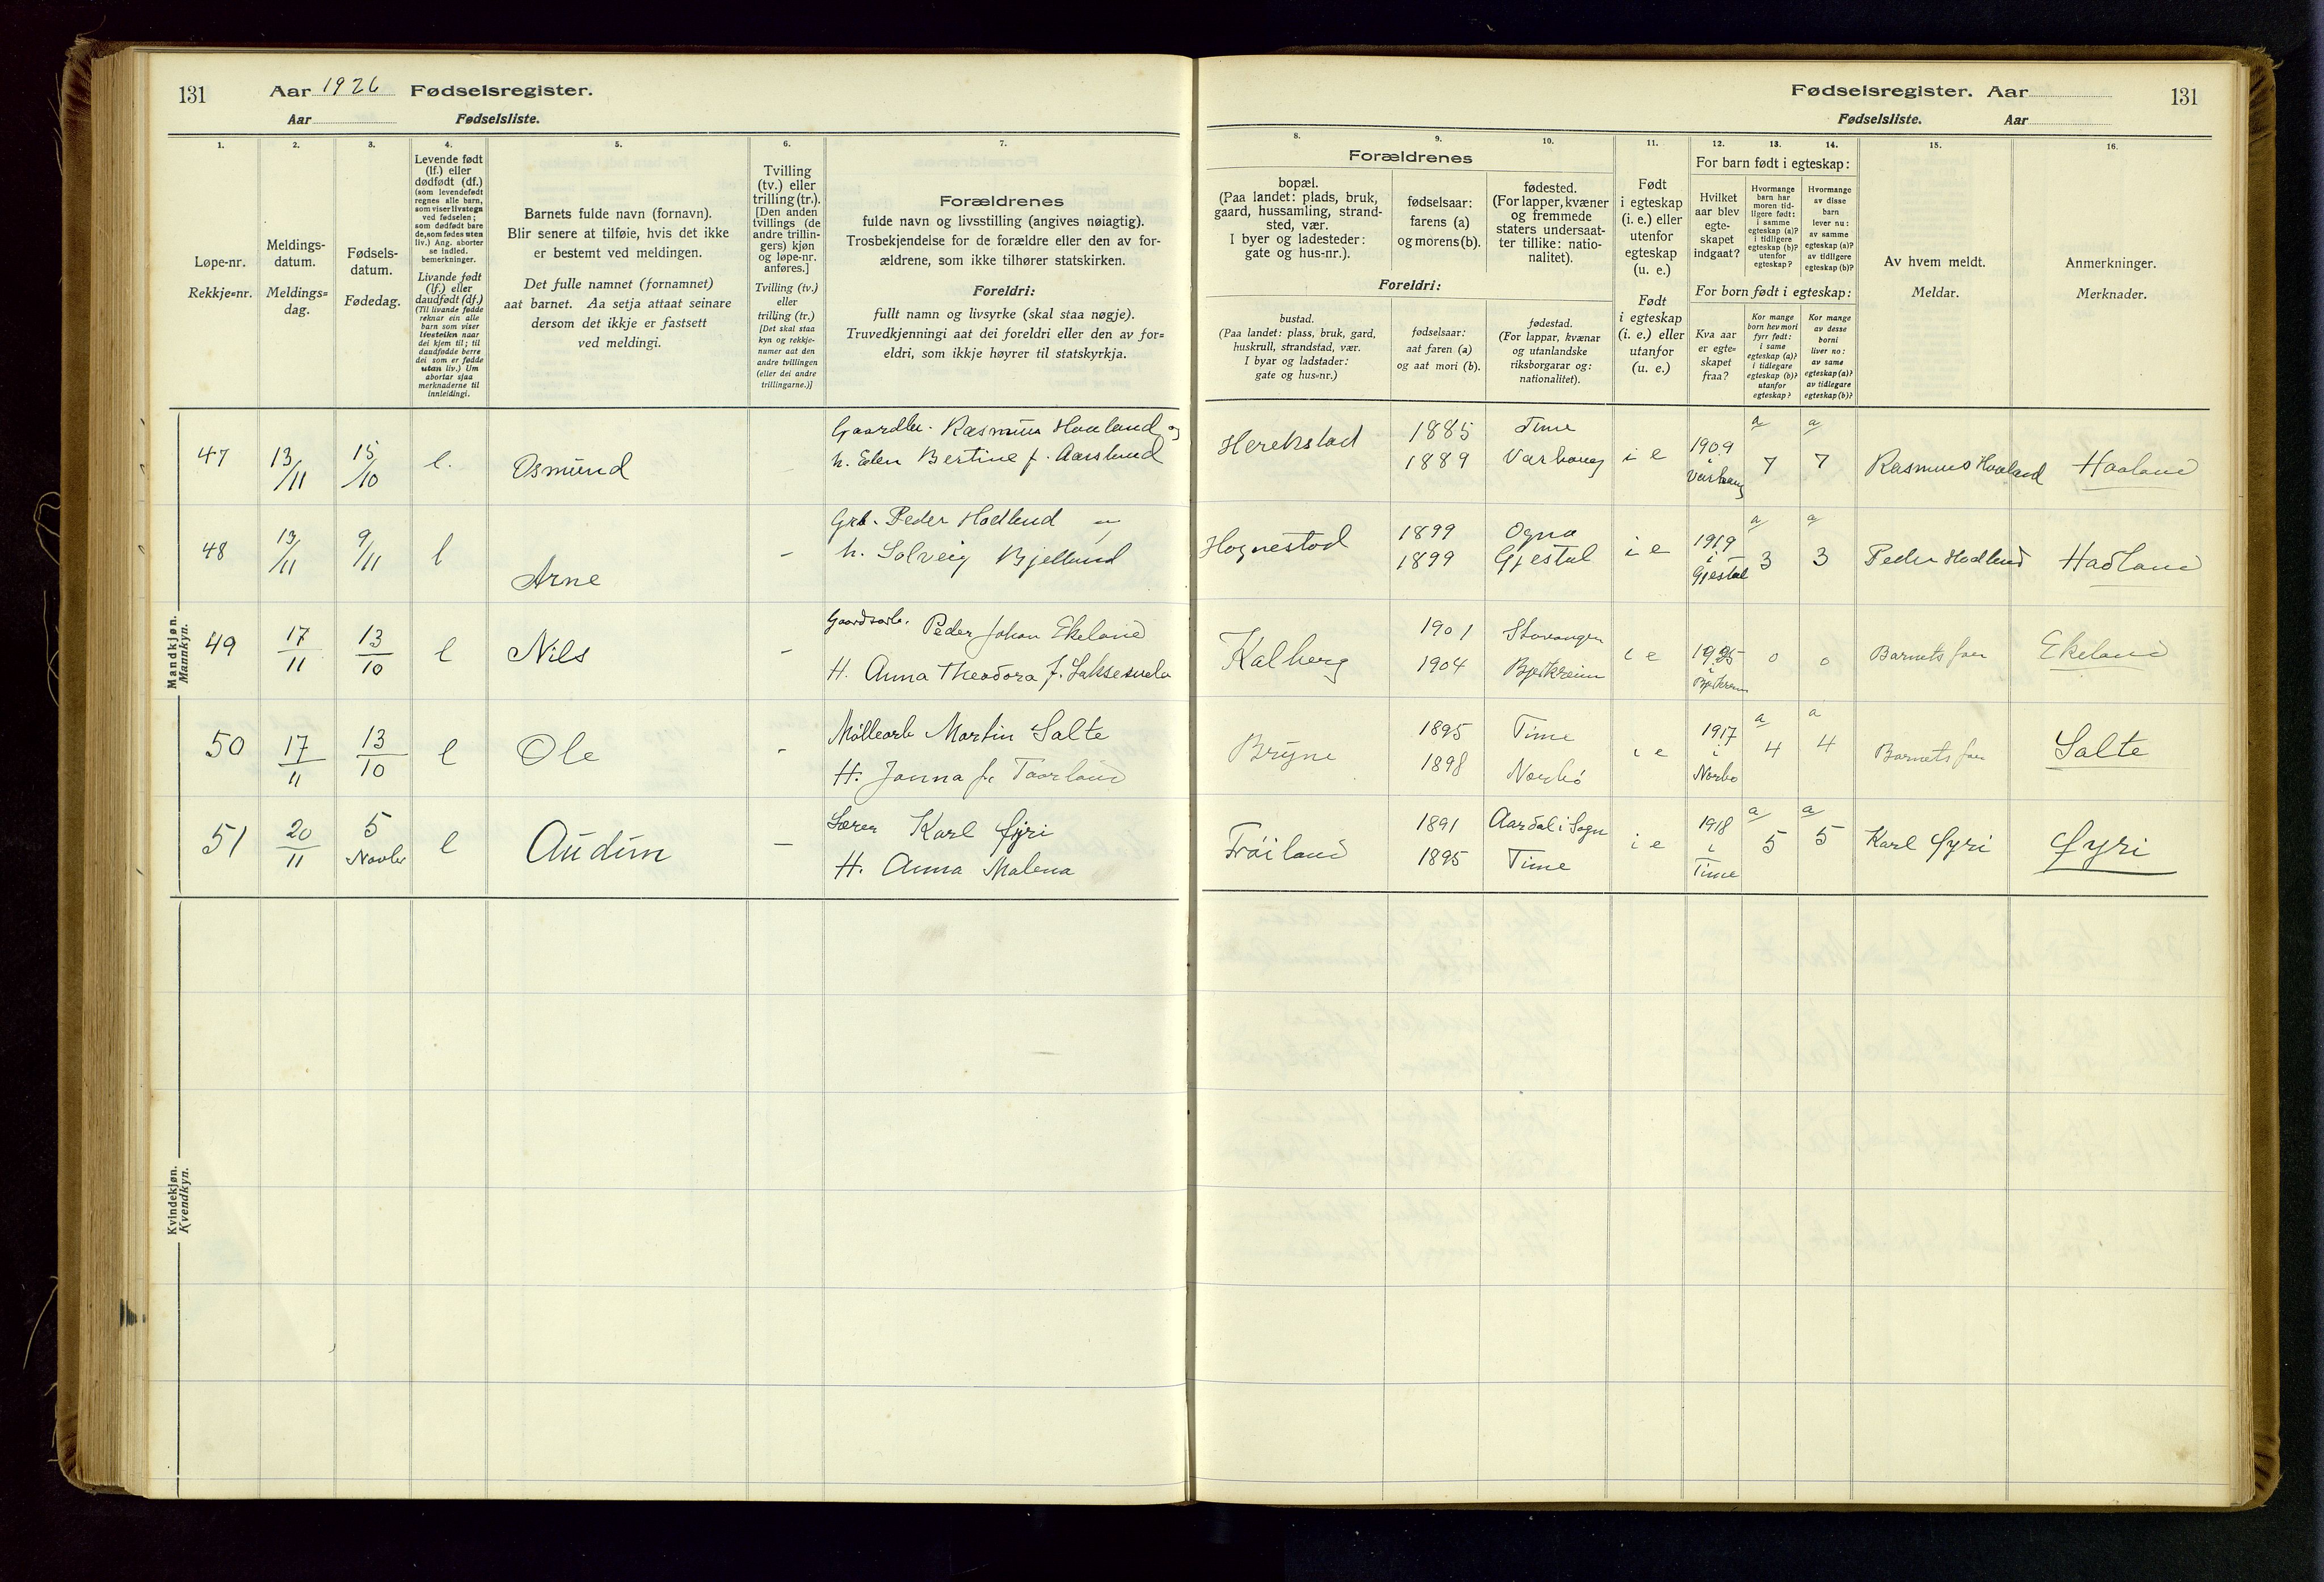 131 Aar 1926 Fødselsregister.
Aar Fødselsliste.
1.
Løpe-nr.
Rekkje-nr.
2.
Meldings-
datum.
Meldings-
dag.
3.
Fødsels-
datum.
Fødedag.
4.
Levende født
(lf.) eller
dødfødt (df.)
(som levendefødt
regnes alle barn,
som viser livstegn
ved fødselen;
som dødfødt bare
de, som fødes uten
liv.) Ang. aborter
se indled.
bemerkninger.
Livande født
(lf.) eller
daudfødt (df.)
(Til livande fødde
reknar ein alle
born som viser
livsteikn naar
dei kjem til; til
daudfødde berre
dei som er fødde
utan liv.) Um
abortar sjaa
merknaderne til
innleidingi.
5.
Barnets fulde navn (fornavn).
Blir senere at tilføie, hvis det ikke
er bestemt ved meldingen.
Det fulle namnet (fornamnet)
aat barnet. Aa setja attaat seinare
dersom det ikkje er fastsett
ved meldingi.
6.
Tvilling
(tv.) eller
trilling (tr.).
[Den anden
tvillings (de
andre trillin-
gers) kjøn
og løpe-nr.
anføres.]
Tvilling (tv.)
eller
trilling (tr.)
[Det skal staa
kyn og rekkje-
numer aat den
andre tvillingen
(eller dei andre
trillingarne.)]
7.
Forældrenes
fulde navn og livsstilling (angives nøiagtig).
Trosbekjendelse for de forældre eller den av for-
ældrene, som ikke tilhører statskirken.
Foreldri:
fullt namn og livsyrke (skal staa nøgje).
Truvedkjenningi aat dei foreldri eller den av for-
eldri, som ikkje høyrer til statskyrkja.
Mandkjøn.
Mannkyn.
47 13/11 15/10 l. Osmund
Gaardbr. Rasmus Haaland og
h. Elen Bertine f. Aarsland
48 13/11 9/11 l Arne –
Grb. Peder Hadland
h. Solveig Bjelland
49 17/11 13/10 l Nils –
Gaardsarb. Peder Johan Ekeland
H. Anna Theodora f.
50 17/11 13/10 l Ole –
Møllearb Martin Salte
H. Janna f. Taarland
51 20/11 5 Novbr l Audun –
Lærer Karl Øyri
H. Anna Malena
Kvindekjøn.
Kvendkyn.
Fødselsregister. Aar 131
Fødselsliste. Aar
8.
Forældrenes
bopæl.
(Paa landet: plads, bruk,
gaard, hussamling, strand-
sted, vær.
I byer og ladesteder:
gate og hus-nr.).
Foreldri:
bustad.
(Paa landet: plass, bruk, gard,
huskrull, strandstad, vær.
I byar og ladstader:
gate og hus-nr.)
9.
fødselsaar:
farens (a)
og morens (b).
fødselsaar:
aat faren (a)
og aat mori (b).
10.
fødested.
(For lapper, kvæner
og fremmede
staters undersaat-
ter tillike: natio-
nalitet).
fødestad.
(For lappar, kvænar
og utanlandske
riksborgarar og:
nationalitet).
11.
Født
i egteskap
(i. e.) eller
utenfor
egteskap
(u. e.)
Født
i egteskap
(i. e.) eller
utanfor
(u. e.)
12. 13. 14.
For barn født i egteskap:
Hvilket
aar blev
egte-
skapet
indgaat?
Hvormange
barn har
moren tid-
ligere født:
i samme
egteskap (a)?
i tidligere
egteskap (b)?
utenfor
egteskap?
Hvormange
av disse
barn
lever nu:
av samme
egteskap (a)?
av tidligere
egteskap (b)?
For born født i egteskap:
Kva aar
er egte-
skapet
fraa?
Kor mange
born hev mori
fyrr født:
i same
egteskap (a)?
i tidlegare
egteskap (b)?
utanfor
egteskap?
Kor mange
av desse
borni
liver no:
av same
egteskap (a)?
av tidlegare
egteskap (b)?
15.
Av hvem meldt.
Meldar.
16.
Anmerkninger.
Merknader.
Herikstad 1885 Time i e 1909 i Varhaug a 7 a 7 Rasmus Haaland Haaland
1889 Varhaug
Hognestad 1899 Ogna i e 1919 i Gjestal a 3 a 3 Peder Hadland Hadland
1899 Gjestal
Kalberg 1901 Stavanger i e 1925 i Bjerkreim 0 0 Barnets far Ekeland
1904 Bjerkreim
Bryne 1895 Time i e 1917 i Nærbø a 4 a 4 Barnets far Salte
1898 Nærbø
Frøiland 1891 Aardal i Sogn i e 1918 i Time a 5 a 5 Karl Øyri Øyri
1895 Time